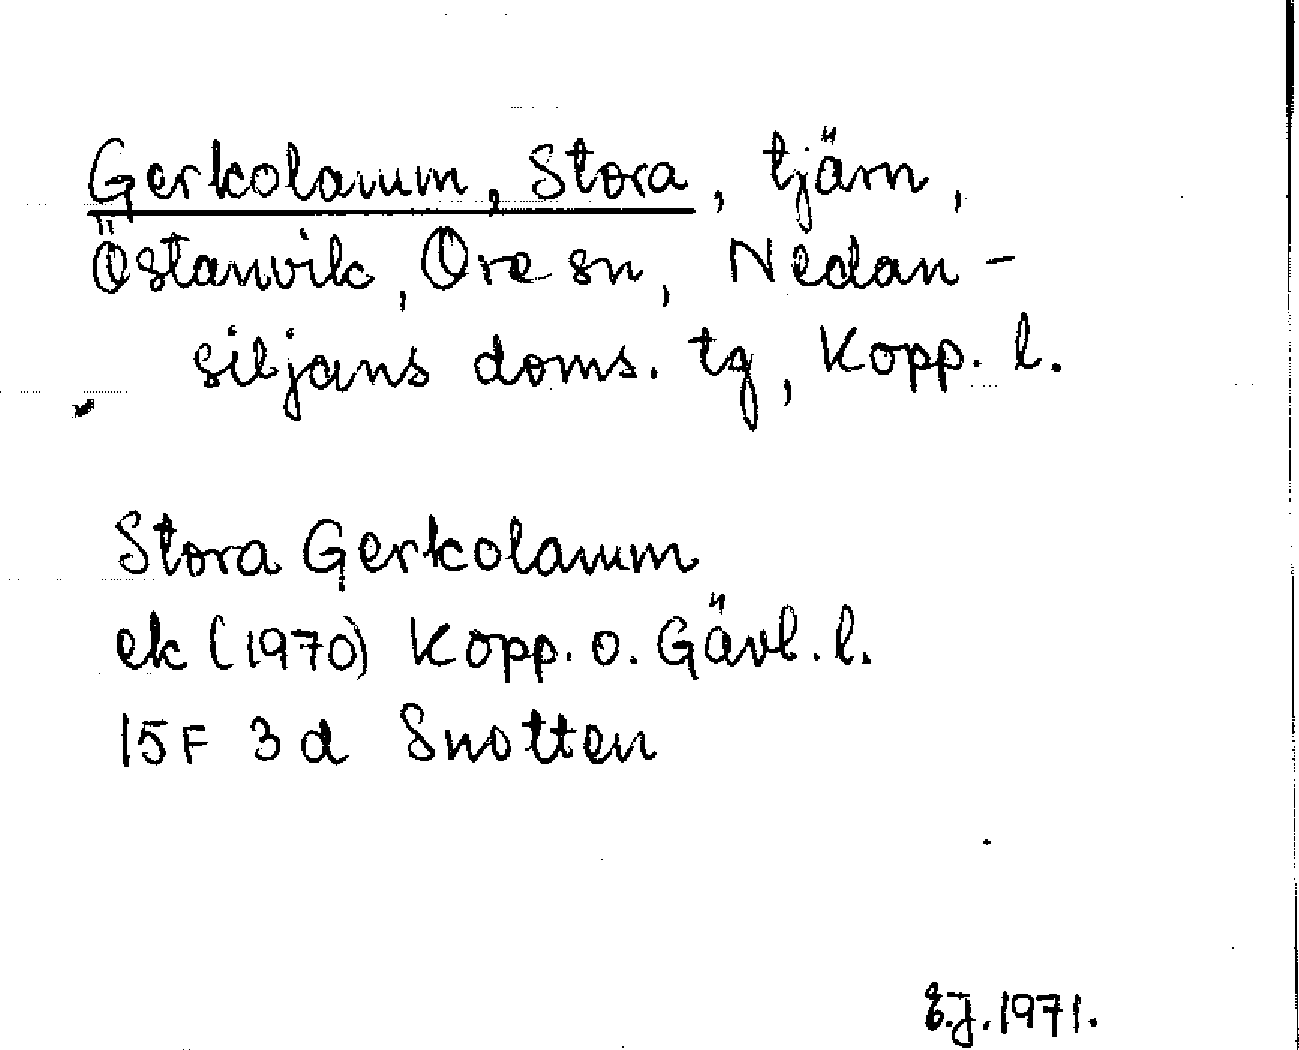 Gerkolamm, Stora, tjärn,
Östanvik, Ore sn, Nedan-
siljans doms. tg, Kopp. l.
Stora Gerkolamm
ek (1970) Kopp. o. Gävl. l.
15F 3d Snotten
E.J. 1971.